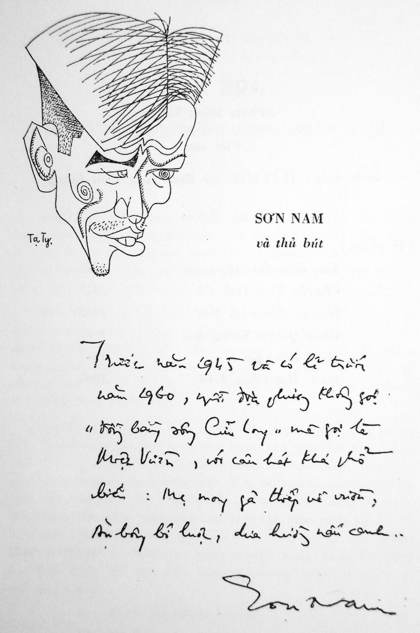 SƠN NAM
và thủ bút
Tạ Tỵ.
Trước năm 1945 và có lẽ trước
năm 1960, người địa phương không gọi
"đồng bằng sông Cửu Long" mà gọi là
Miệt Vườn, với câu hát khá phổ
biến : Mẹ mong gả thiếp về vườn,
Ăn bông bí luộc, dưa hường nấu canh..
Sơn Nam